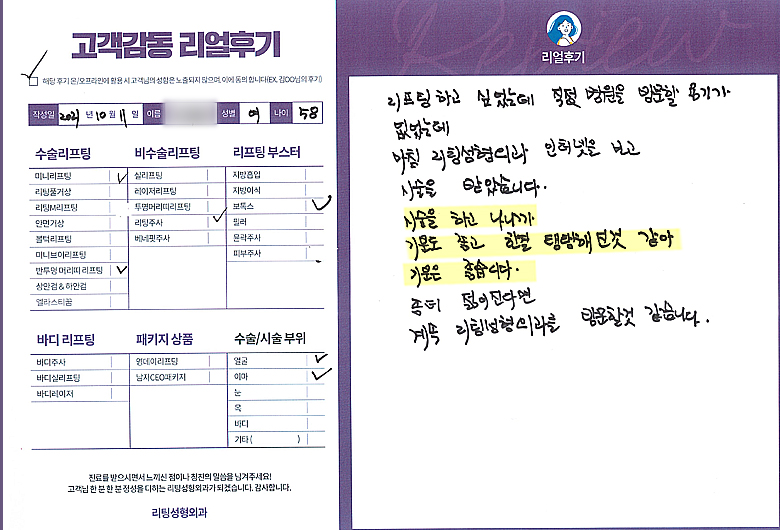 고객감동 리얼후기
해당 후기 온/오프라인에 활용 시 고객님의 성함은 노출되지 않으며, 이에 동의 합니다(EX, 김OO님의 후기)
작성일 2021 년 10 월 11 일 이름 성별 여 나이 58
수술리프팅
미니리프팅
리팅풀거상
리팅M리프팅
안면거상
볼턱리프팅
미니브이리프팅
반투명 머리띠 리프팅
상안검 & 하안검
엘라스티꿈
비수술리프팅
실리프팅
레이저리프팅
투명머리띠리프팅
리팅주사
베네핏주사
리프팅 부스터
지방흡입
지방이식
보톡스
필러
윤곽주사
피부주사
바디 리프팅
바디주사
바디실리프팅
바디레이저
패키지 상품
원데이리프팅
남자CEO패키지
수술/시술 부위
얼굴
이마
눈
목
바디
기타 ( )
진료를 받으시면서 느끼신 점이나 칭찬의 말씀을 남겨주세요!
고객님 한 분 한 분 정성을 다하는 리팅성형외과가 되겠습니다. 감사합니다.
리팅성형외과
Review
리얼후기
리프팅 하고 싶었는데 직접 병원을 방문할 용기가
없었는데
마침 리팅성형외과 인터넷을 보고
시술을 받았습니다.
시술을 하고 나니까
기분도 좋고 한결 탱탱해진것 같아
기분은 좋습니다.
좀더 젊어진다면
계속 리팅성형외과를 방문할것 같습니다.